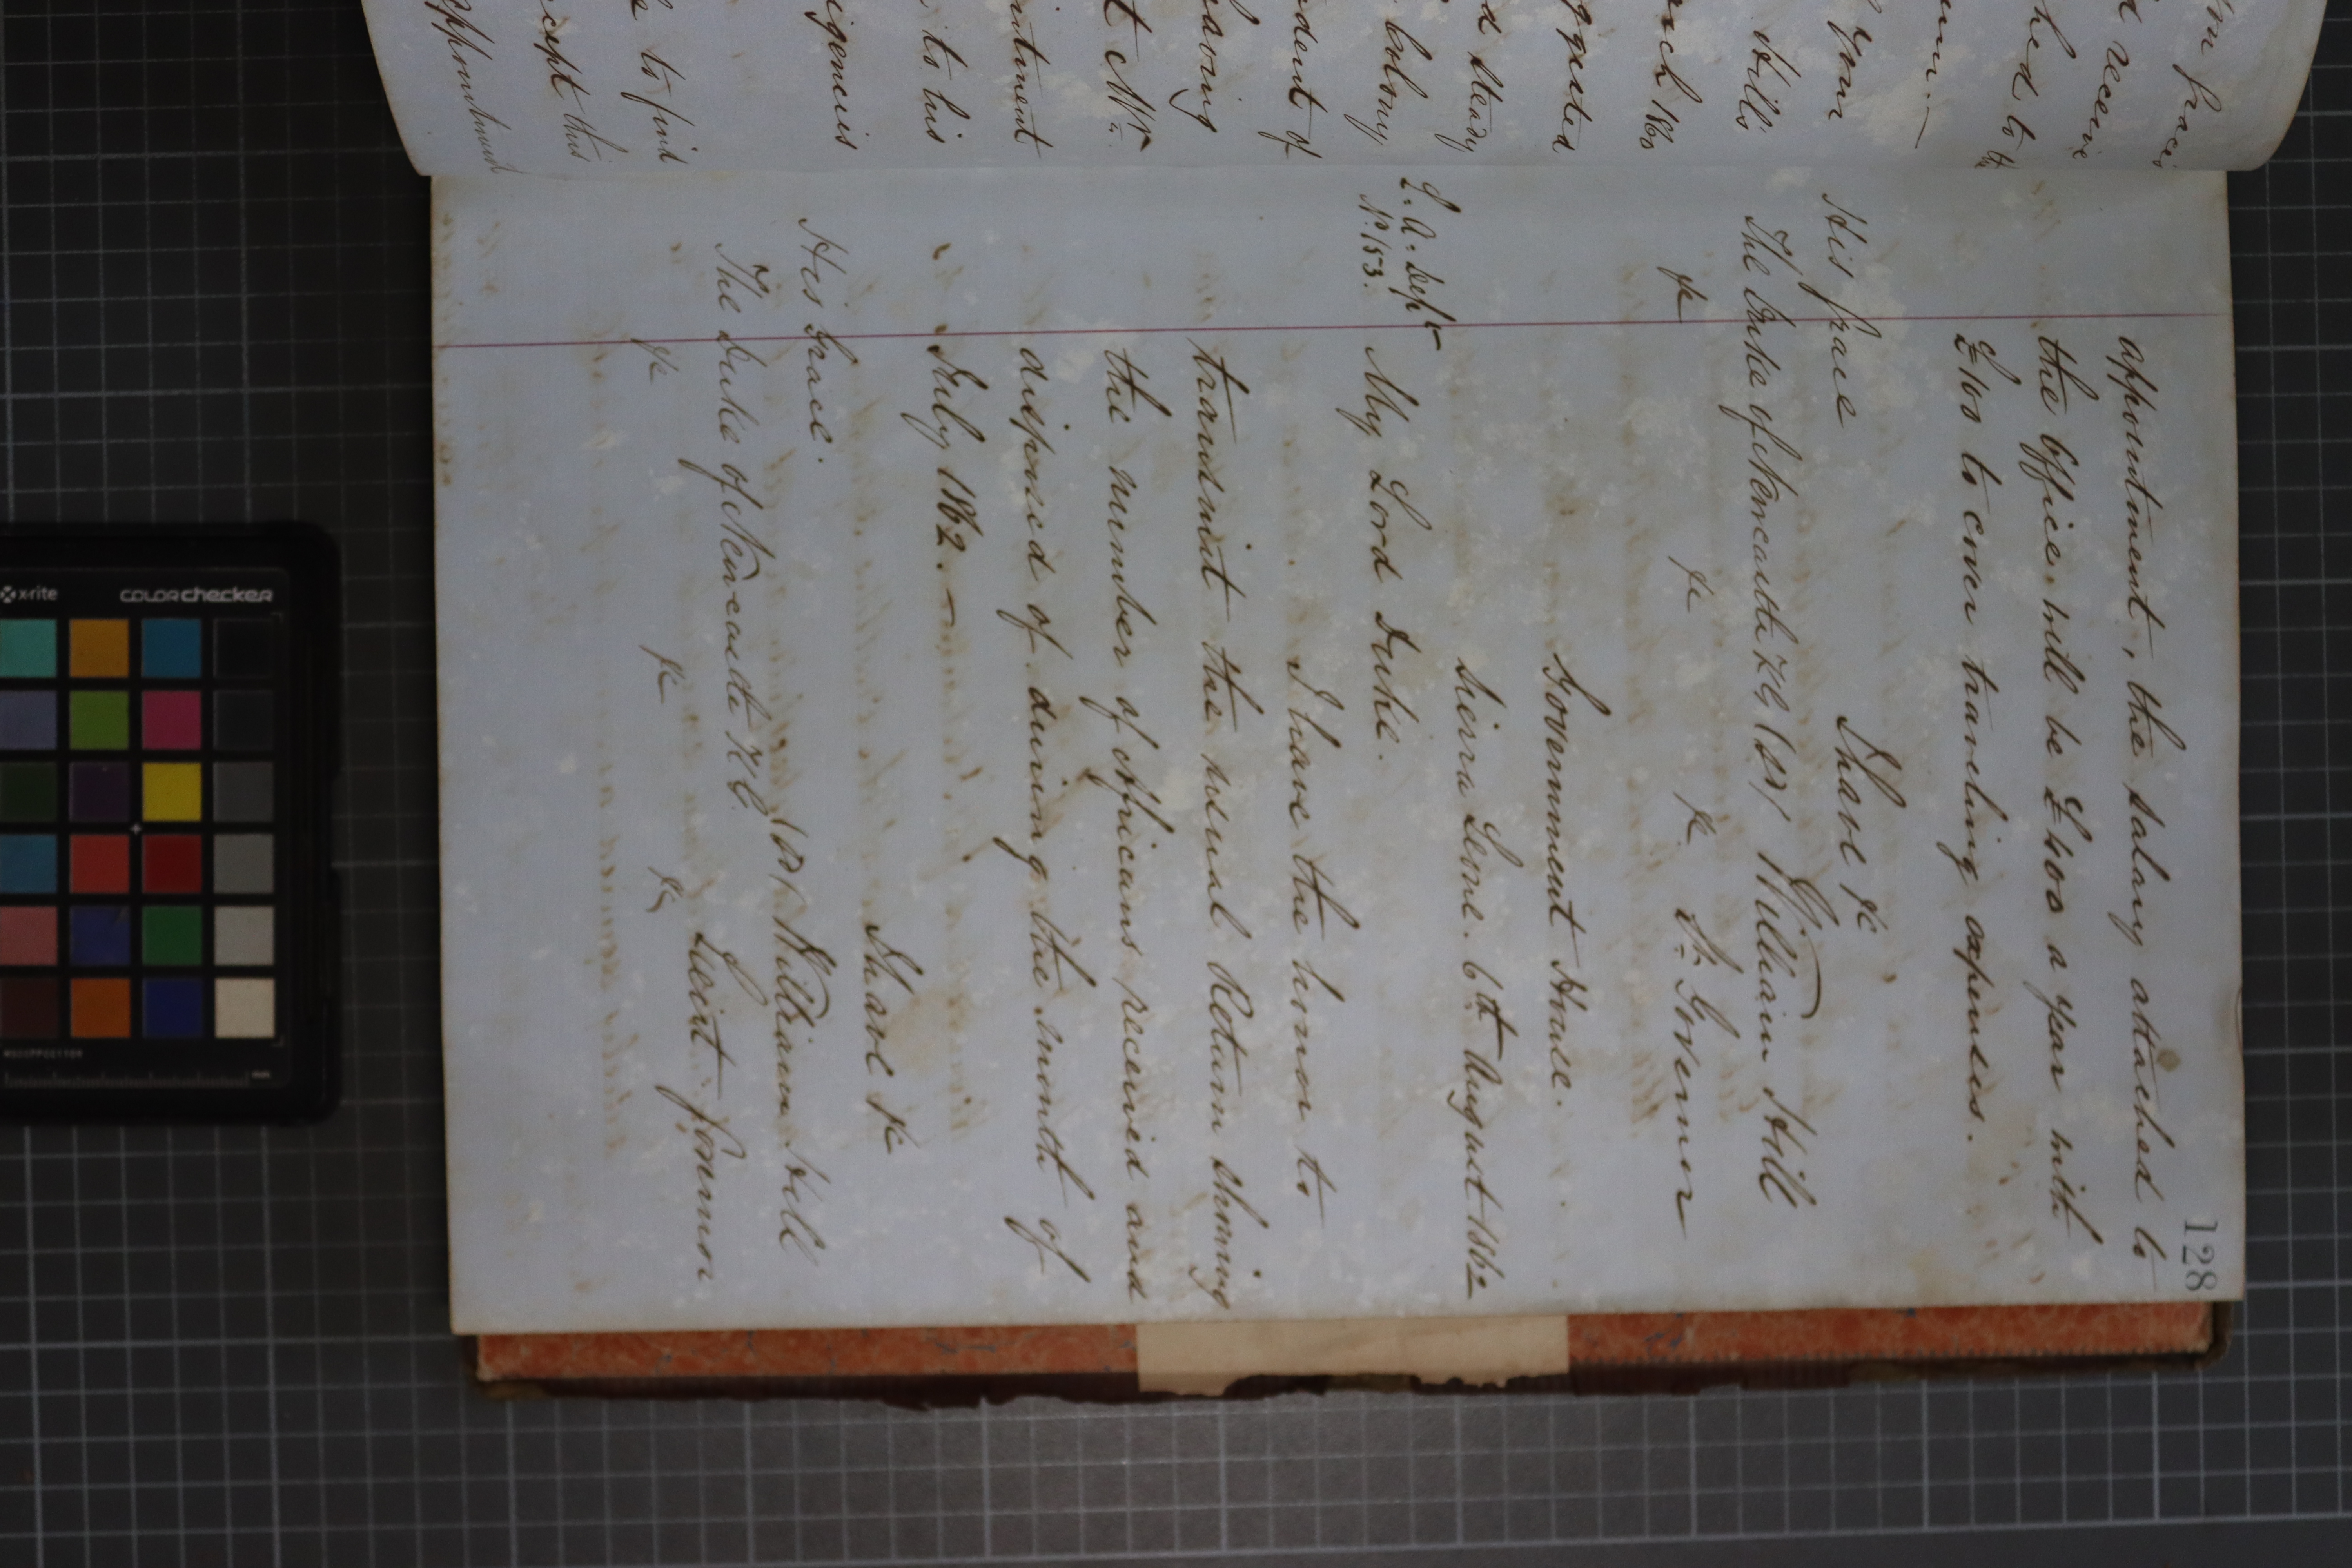 128
appointment, the salary attached to
the Office will be £400 a year with
£100 to cover traveling expenses.
I have &c
His Grace
The Duke of Newcastle K.G. (sd) William Hill
&c &c &c Lt. Governor
Government House.
Sierra Leone. 6th August 1862
L. A. Dept
No. 153.
My Lord Duke.
I have the honor to
transmit the usual Return shewing
the number of Africans received and
disposed of during the month of
July 1862. —
I have &c
His Grace.
The Duke of Newcastle K.G. (sd) William Hill
&c &c &c Lieut. Governor
on Grace
d receive
hed to the
your
Hills
rch 1860
ggested
d steady
Colony
ndent of
having
t Mr.
intment
to his
igencies
to find
cept this
appointment
x-rite
colorchecker